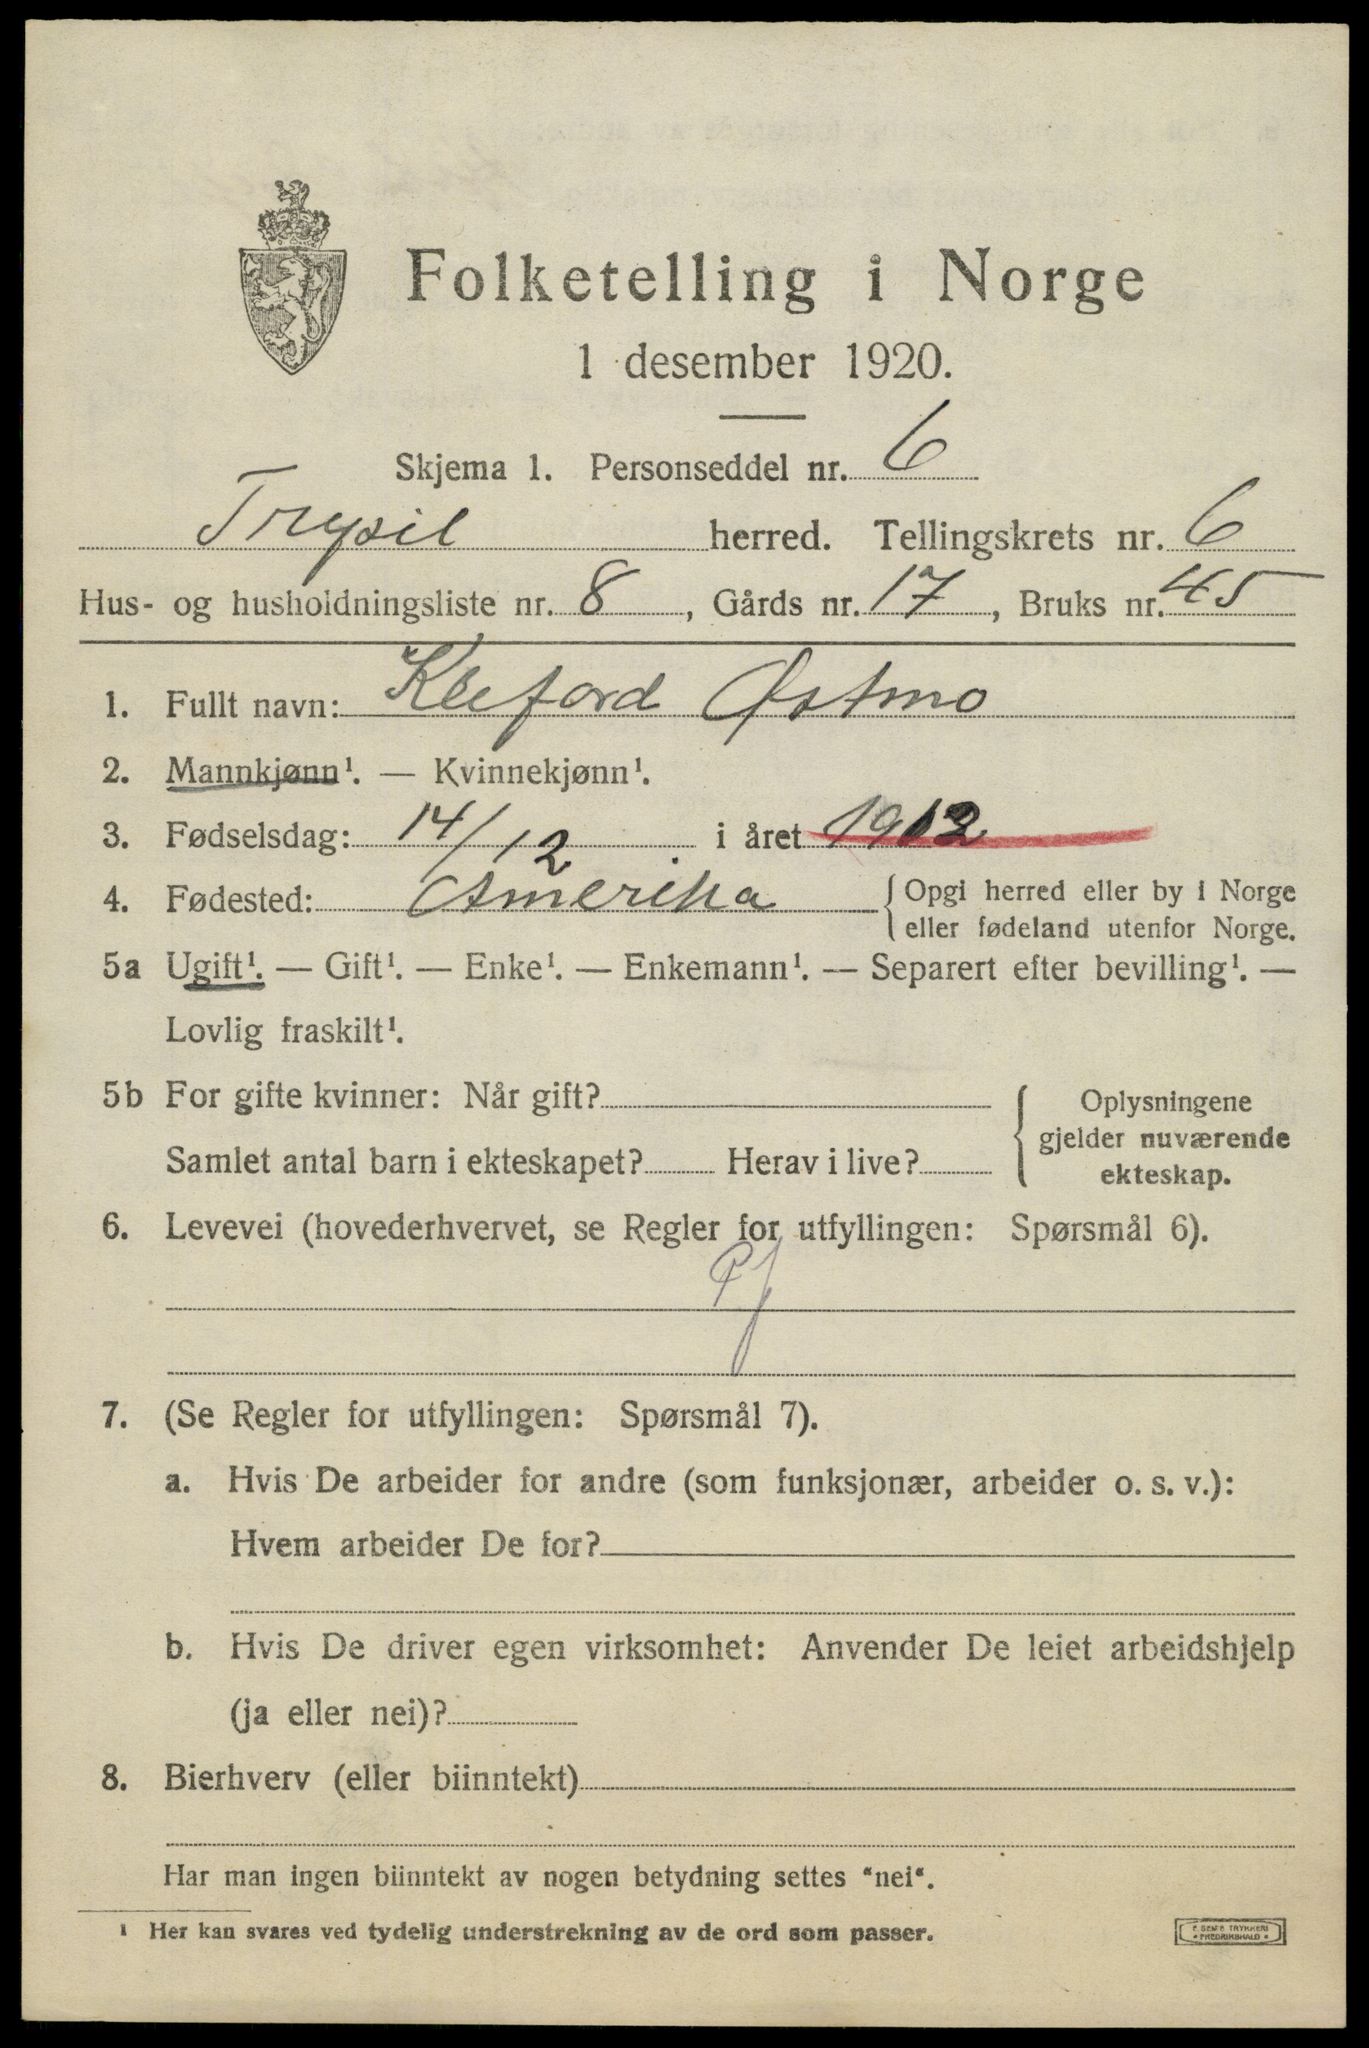 Folketelling i Norge
1 desember 1920.
Skjema 1. Personseddel nr. 6
Trysil herred. Tellingskrets nr. 6
Hus- og husholdningsliste nr. 8, Gårds nr. 17, Bruks nr. 45
1. Fullt navn: Kleford Østmo
2. Mannkjønn¹. — Kvinnekjønn¹.
3. Fødselsdag: 14/12 i året 1912
4. Fødested: Amerika { Opgi herred eller by i Norge
eller fødeland utenfor Norge.
5a Ugift¹. — Gift¹. — Enke¹. — Enkemann¹. — Separert efter bevilling¹. —
Lovlig fraskilt¹.
5b For gifte kvinner: Når gift?
Samlet antal barn i ekteskapet? Herav i live?
Oplysningene
gjelder nuværende
ekteskap.
6. Levevei (hovederhvervet, se Regler for utfyllingen: Spørsmål 6).
7. (Se Regler for utfyllingen: Spørsmål 7).
a. Hvis De arbeider for andre (som funksjonær, arbeider o. s. v.):
Hvem arbeider De for?
b. Hvis De driver egen virksomhet: Anvender De leiet arbeidshjelp
(ja eller nei)?
8. Bierhverv (eller biinntekt)
Har man ingen biinntekt av nogen betydning settes "nei".
¹ Her kan svares ved tydelig understrekning av de ord som passer.
E. SEMS TRYKKERI
• FREDRIKSHALD •